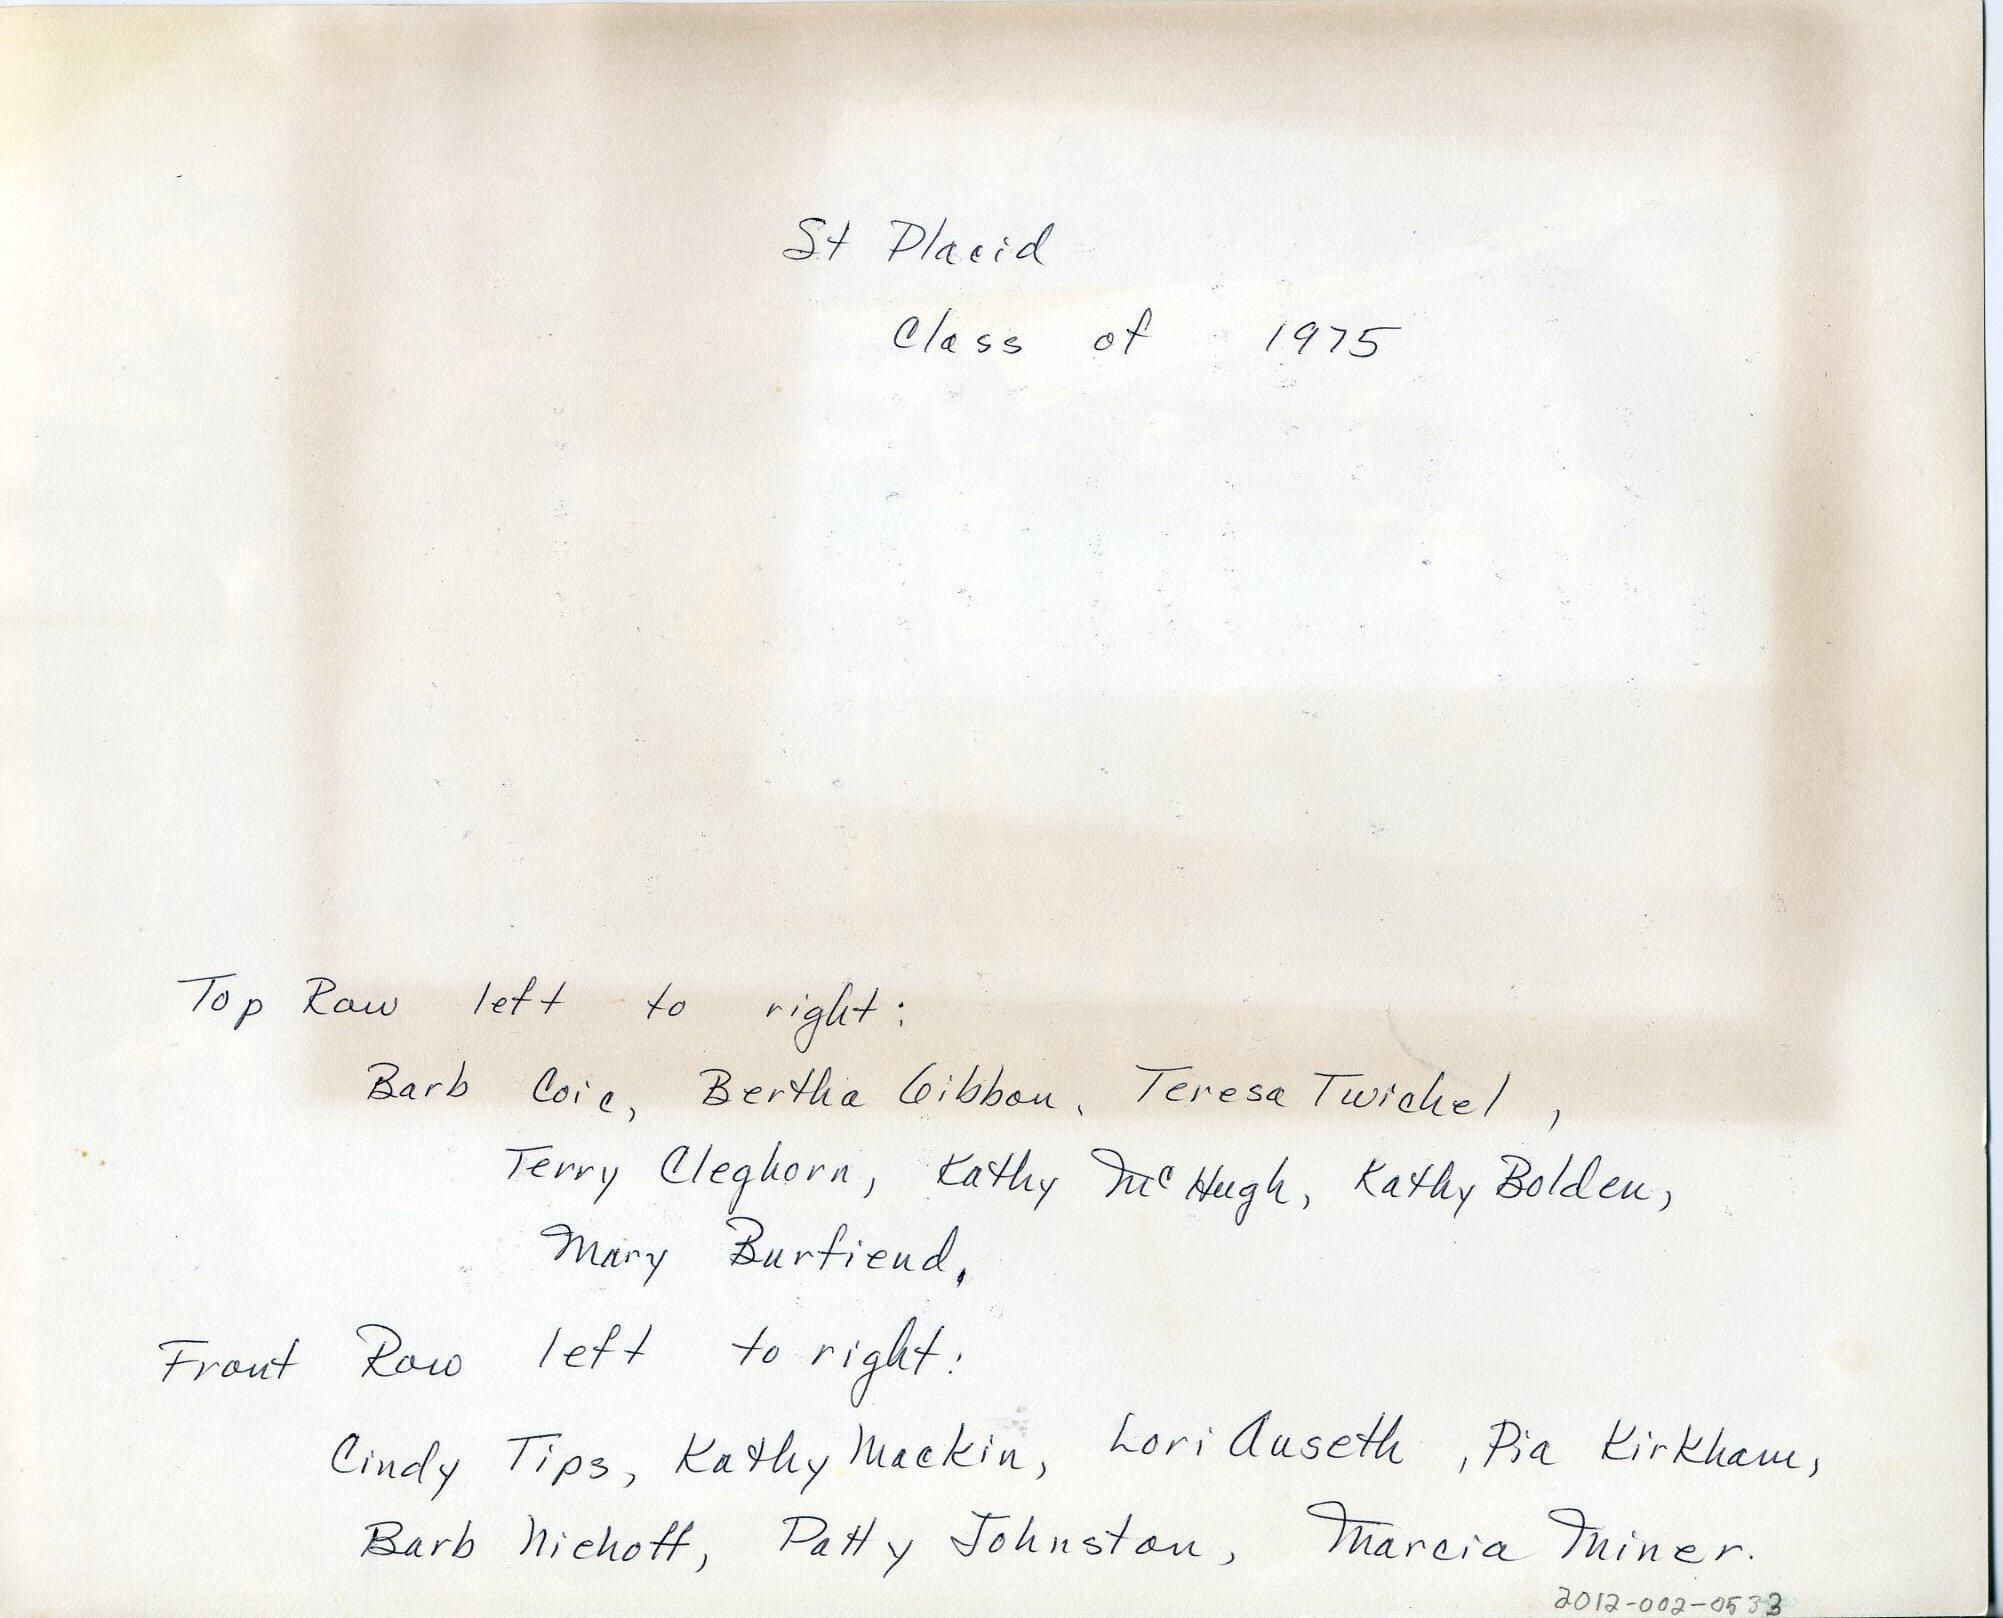 St Placid
Class of 1975
Top Row left to right:
Barb Coie, Bertha Gibbon, Teresa Twichel,
Terry Cleghorn, Kathy McHugh, Kathy Bolden,
Mary Burfiend,
Front Row left to right:
Cindy Tips, Kathy Mackin, Lori Auseth, Pia Kirkham,
Barb Niehoff, Patty Johnston, Marcia Miner.
2012-002-0533